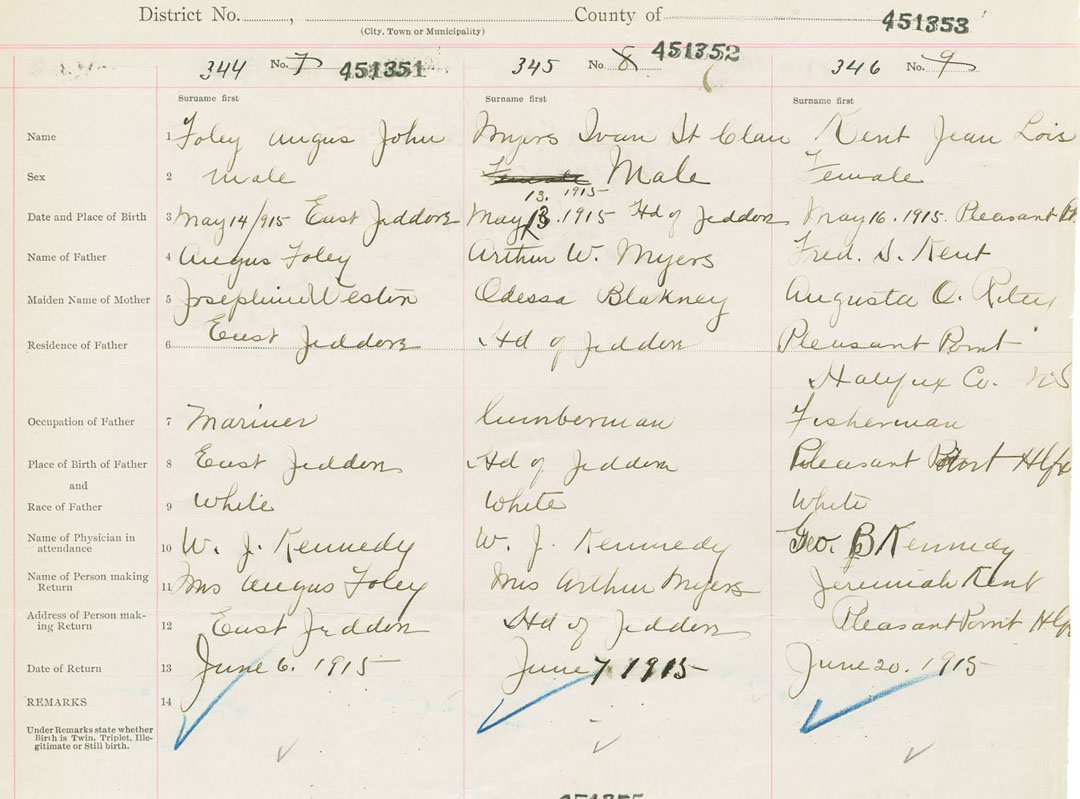 District No. , County of 451353
(City, Town or Municipality)
344 No. 7 451351 345 No. 8 451352 346 No. 9
Surname first Surname first Surname first
Name 1 Foley Angus John Myers Ivan St Clair Kent Jean Lois
Sex 2 Male Female Male Female
13. 1915
Date and Place of Birth 3 May 14/915 East Jeddore May 13. 1915 Hd of Jeddore May 16. 1915. Pleasant Pt.
Name of Father 4 Angus Foley Arthur W. Myers Fred. S. Kent
Maiden Name of Mother 5 Josephine Weston Odessa Blakney Augusta O.
Residence of Father 6 East Jeddore Hd of Jeddore Pleasant Point
Halifax Co. NS
Occupation of Father 7 Mariner Lumberman Fisherman
Place of Birth of Father 8 East Jeddore Hd of Jeddore Pleasant Hlfx
and
Race of Father 9 White White White
Name of Physician in
attendance 10 W. J. Kennedy W. J. Kennedy Geo. B Kennedy
Name of Person making
Return 11 Mrs Angus Foley Mrs Arthur Myers Jeremiah Kent
Address of Person mak-
ing Return 12 East Jeddore Hd of Jeddore Pleasant Point Hlfx
Date of Return 13 June 6. 1915 June 7 1915 June 20. 1915
REMARKS 14
Under Remarks state whether
Birth is Twin, Triplet, Ille-
gitimate or Still birth.